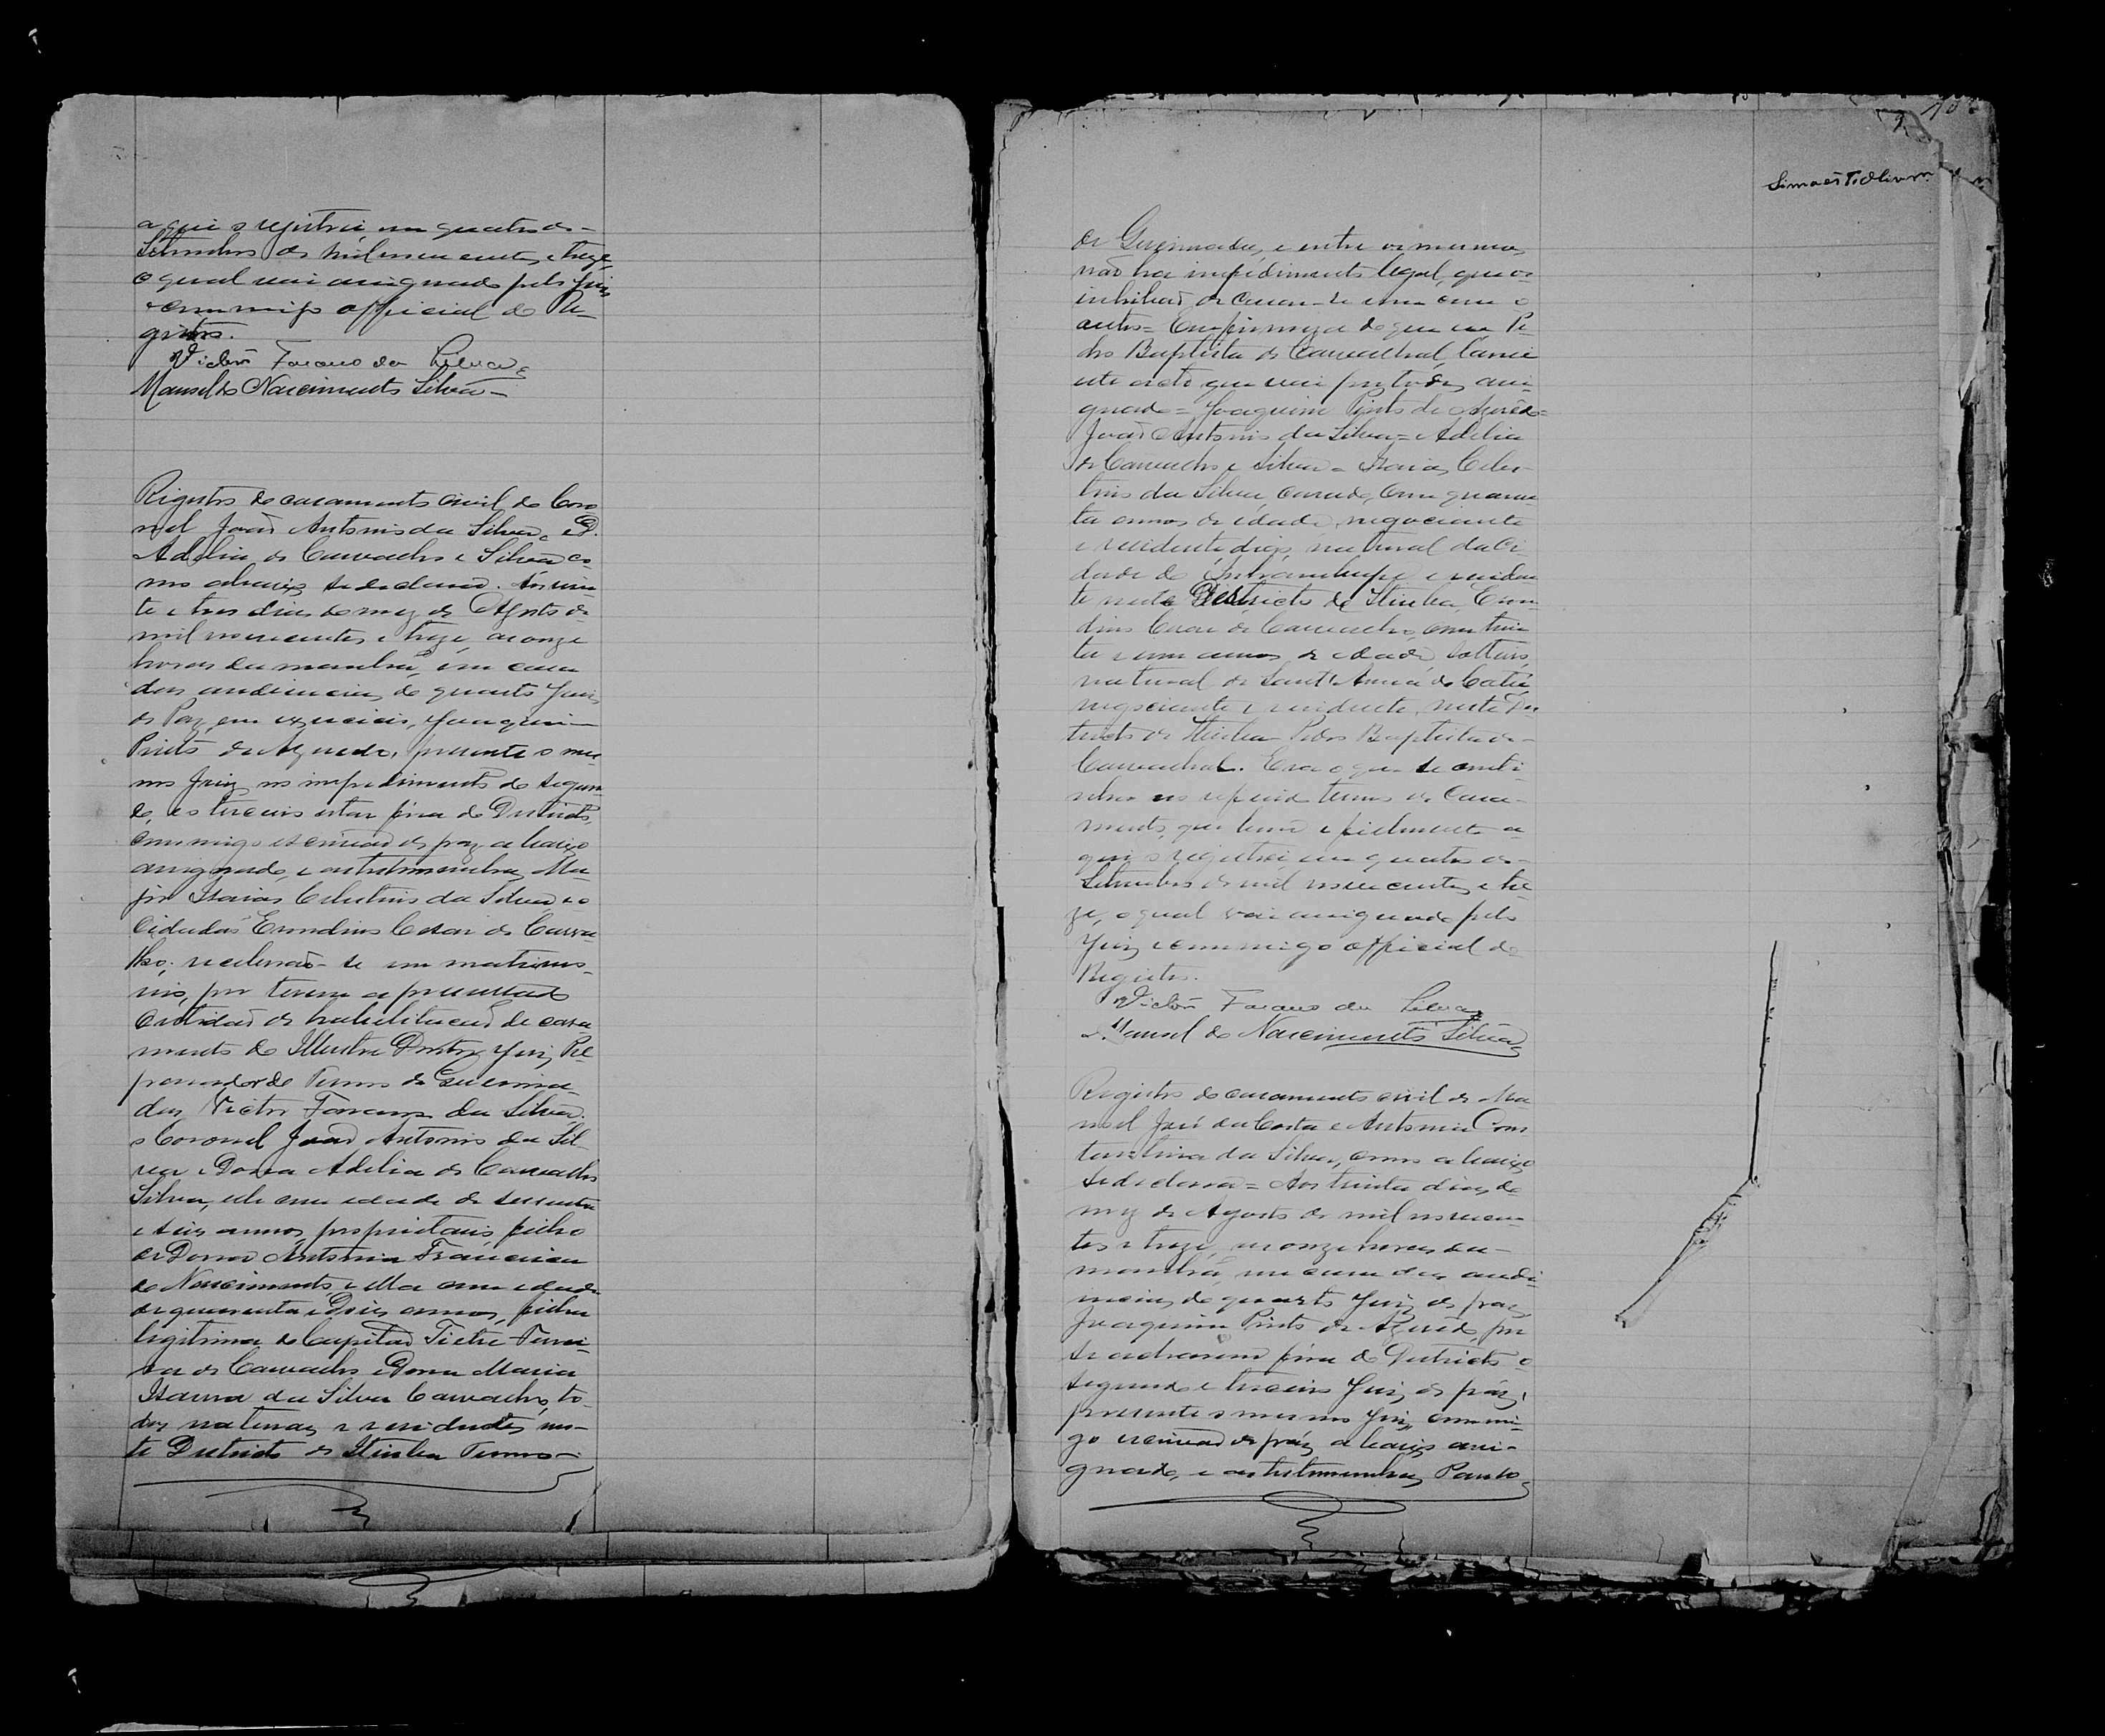 aqui o registrei em quatro de-
Setembro de mil novecentos e treze,
o qual vai assignado pelo Juiz
e commigo official do Re-
gistro.
Victor Farano da Silva
Manoel do Nascimento Silva-
Registro de casamento civil do Coro
nel João Antonio da Silva, e D.
Adelia de Carvalho e Silva co-
mo abaixo se declara. Aos vin-
te e tres dias do mez de Agosto de
mil novecentos e treze, as onze
horas da manhã, em casa
das audiencias do quarto Juiz
de Paz em exercicio, Joaquim
Pinto de Azevedo, presente o mes-
mo Juiz no impedimento do segun
do, e o terceiro estar fóra do Districto,
commigo escrivão de paz abaixo
assignado, e as testemunhas, Ma-
jor Isaias Celestino da Silva e o
Cidadão Erundino Cesar de Carva
lho; receberão-se em matrimo-
nio, por terem apresentado
Certidão de habilitação de casa
mento do Illustre Doutor Juiz Pre
parador do Termo de Queima
das Victor Farano da Silva.
o Coronel João Antonio da Sil
va e Dona Adelia de Carvalho
Silva, elle com idade de sessenta
e seis annos, proprietario filho
de Dona Antonia Francisca
do Nascimento, e ella com idade
de quarenta e dois annos, filha
legitima do Capitão Tietre Ferrei-
ra de Carvalho e Dona Maria
Isaura da Silva Carvalho, to-
dos naturaes e residentes nes-
te Districto de Itiuba Termo-
Simões Filho
de Queimadas, e entre os mesmos,
não ha impedimento legal, que os
inhibão de casar-se um com o
outro= Em firmeza do que eu Pe
dro Baptista de Carvalhal, lavrei
este acto que vai por todos assi-
gnado= Joaquim Pinto de Azevêdo=
João Antonio da Silva= Adelia
de Carvalho e Silva= Isaias Celes-
tino da Silva, casado, com quaren
ta annos de idade, negociante
e residente digo, natural da Ci
dade de Inhambupe e residen
te neste Districto de Itiuba, Erun
dino Cesar de Carvalho, com trin
ta e um annos de idade, solteiro,
natural de Sant'Anna do Catú,
negociante e residente, neste Dis
tricto de Itiuba Pedro Baptista de-
Carvalhal. Era o que se conti-
nha no referido termo de Casa-
mento, que bem e fielmente a-
qui o registrei em quatro de-
Setembro de mil novecentos e tre
ze, o qual vai assignado pelo
Juiz e commigo official do
Registro.
Victor Farano da Silva
Manoel do Nascimento Silva
Registro do casamento civil de Ma
noel José da Costa e Antonia Cons
tantina da Silva, como abaixo
se declara= Aos trinta dias do
mez de Agosto de mil novecen-
tos e treze, as onze horas da-
manhã, em casa das audi-
encias do quarto Juiz de paz,
Joaquim Pinto de Azevêdo, por
se acharem fóra do Districto o
segundo e terceiro Juiz de páz,
presente o mesmo Juiz, commi-
go escrivão de páz abaixo assi-
gnado, e as testemunhas, Paulo